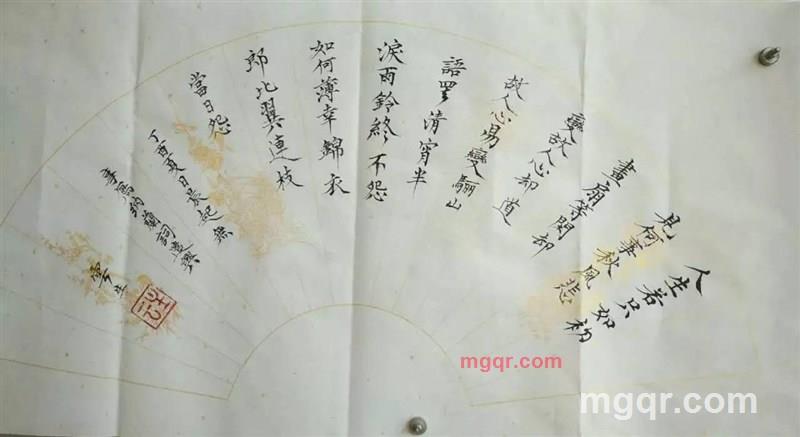 人生若只如初
見何事秋風悲
畫扇等閑却
變故人心却道
故人心易變驪山
語罷清宵半
淚雨鈴終不怨
如何薄幸錦衣
郎比翼連枝
當日怨
丁酉夏日晨起無
事寫納蘭詞遣興
mgqr.com
mgqr.com